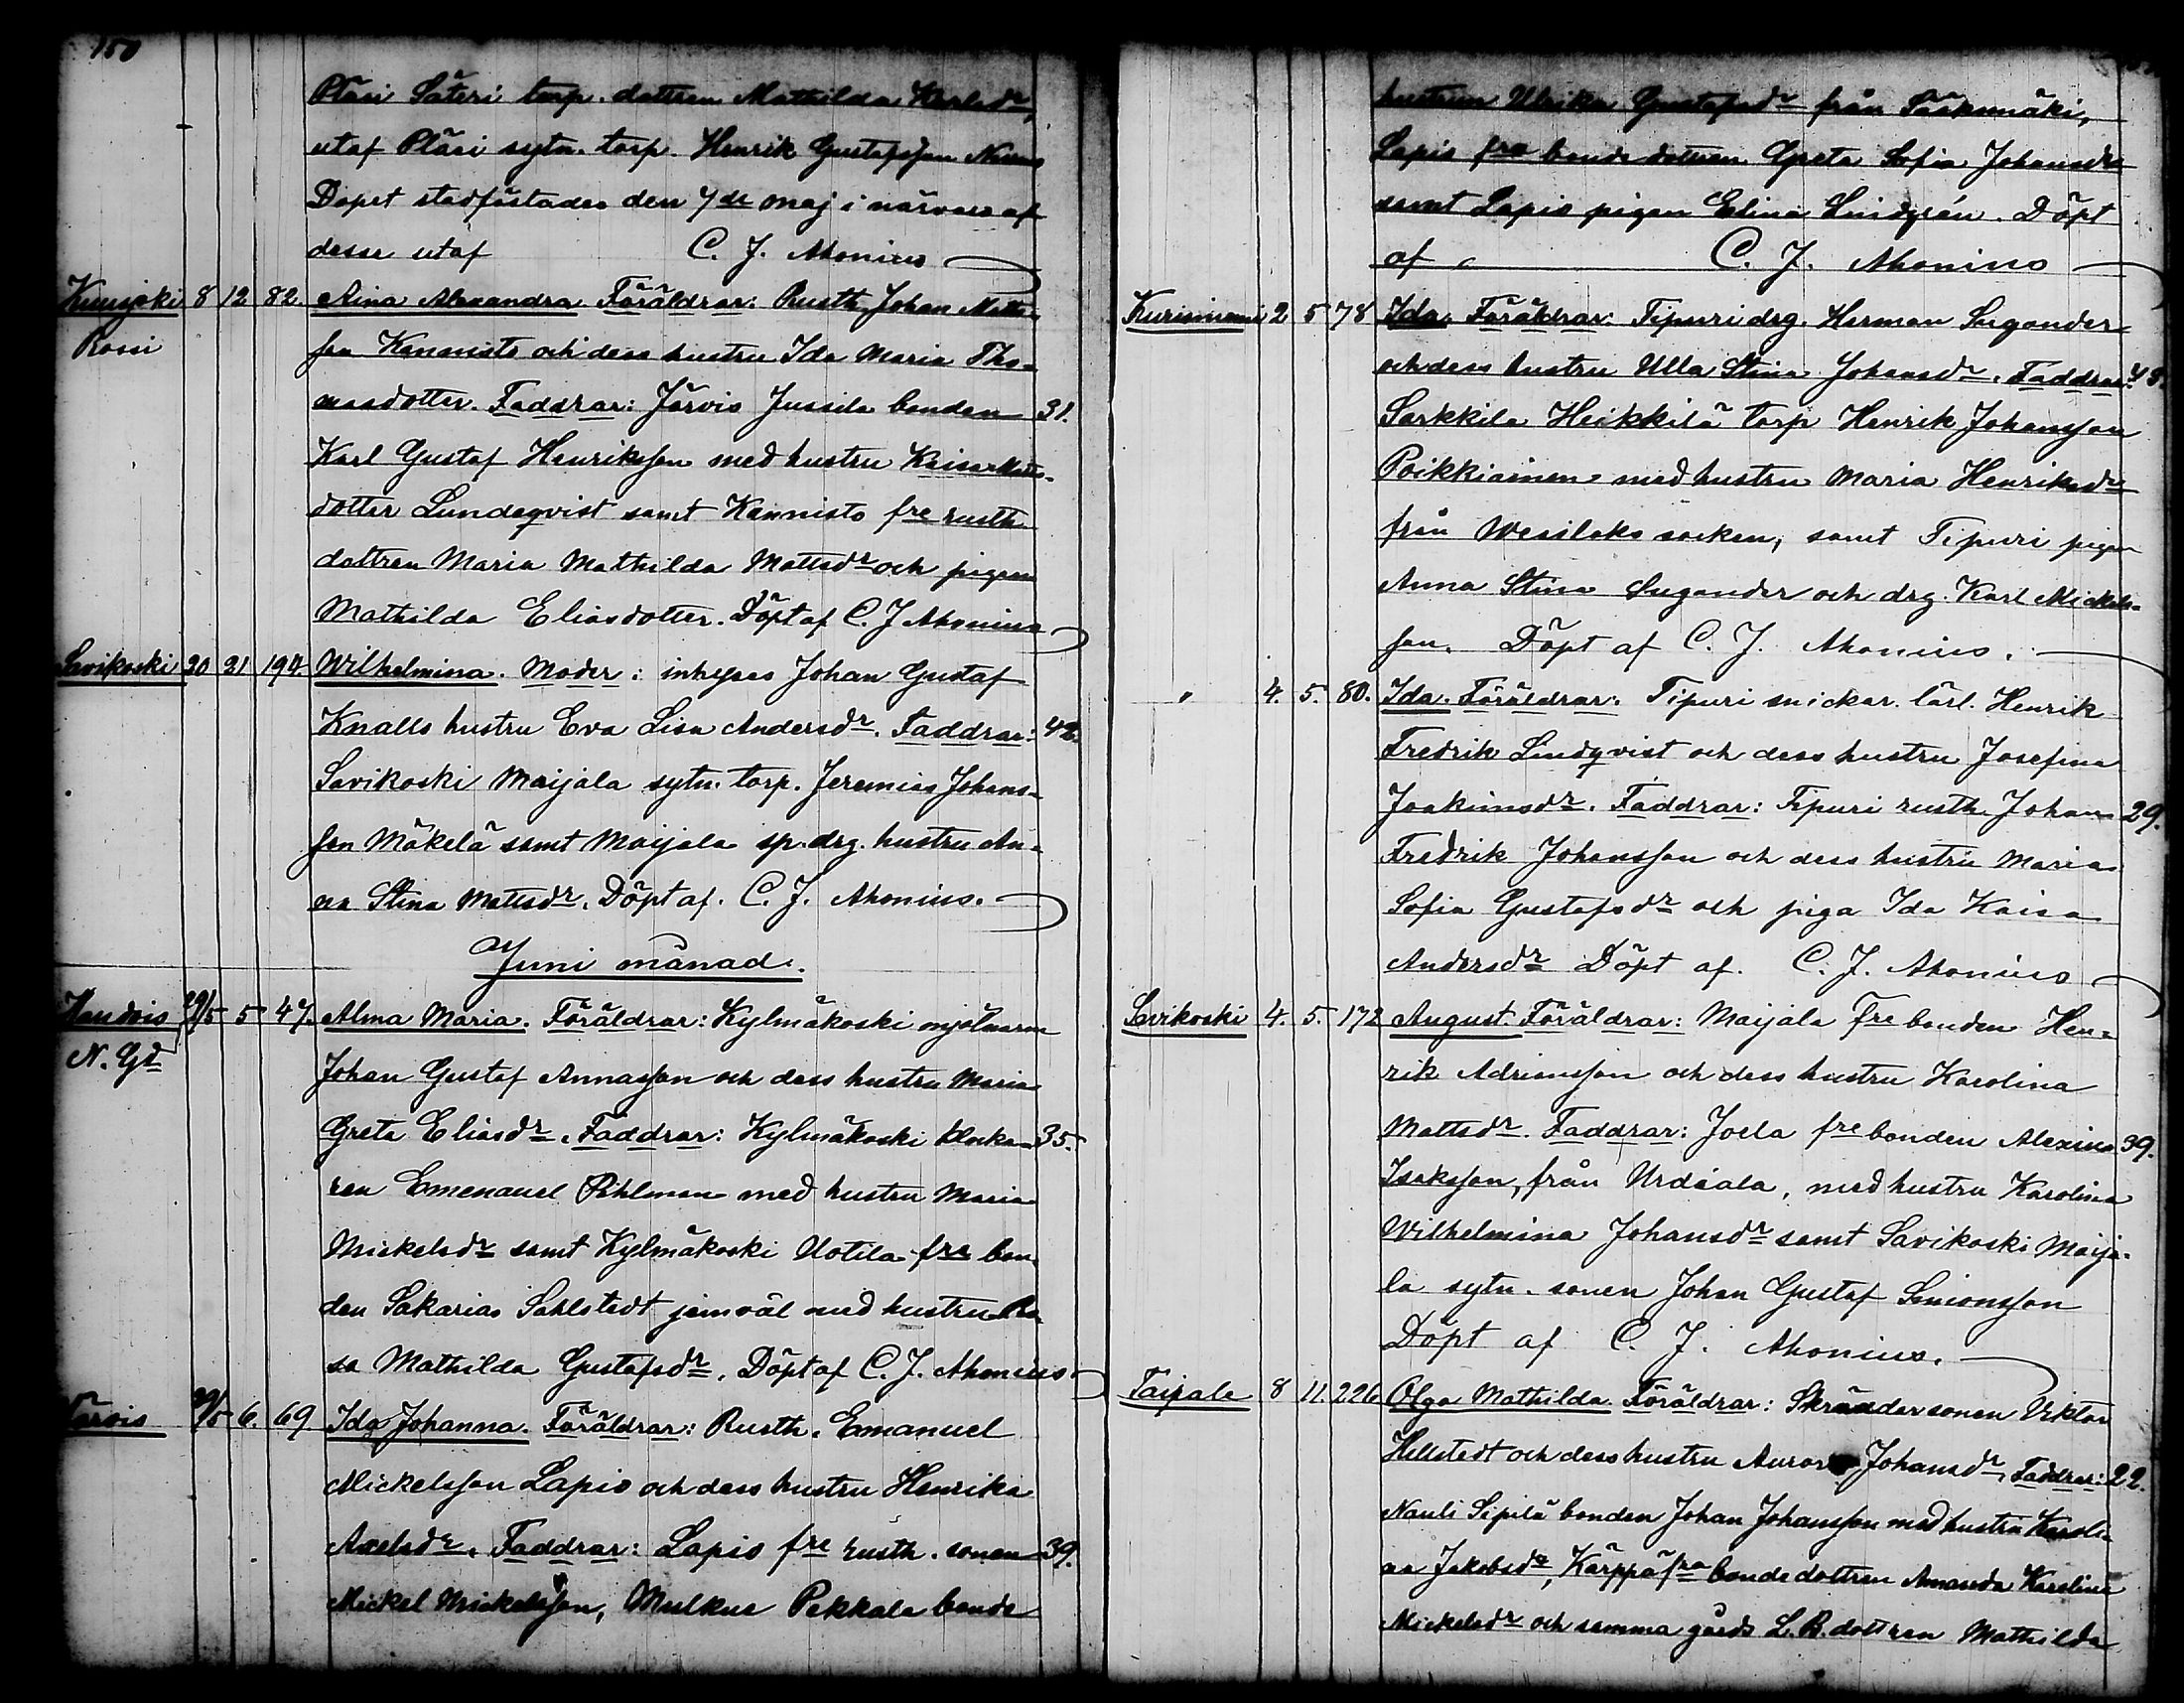 150
Pläsi Säteri torp. dottren Mathilda Karlsdr,
utaf Pläsi sytn. torp. Henrik Gustafsson
Dopet stadfästades den 7de maj i närvaro af
desse utaf C. J. Ahonius
Kuusjoki 8 12 82. Aina Alexandra. Föräldrar: Rusth. Johan Matts-
Rossi son Kannisto och dess hustru Ida Maria Tho-
masdotter. Faddrar: Järvis Jussila bonden 31.
Karl Gustaf Henriksson med hustru Kaisa Matts-
dotter Lundeqvist samt Kannisto fre rusth.
dottren Maria Mathilda Mattsdr och pigan
Mathilda Eliasdotter. Döpt af C. J. Ahonius
Savikoski 20 21 194. Wilhelmina. Moder: inhyses Johan Gustaf
Knalls hustru Eva Lisa Andersdr. Faddrar: 42.
Savikoski Maijala sytn. torp. Jeremias Johans-
son Mäkelä samt Maijala sp. drg. hustru An-
na Stina Mattsdr. Döpt af C. J. Ahonius.
Juni månad.
29/5 5 47. Alma Maria. Föräldrar: Kylmäkoski mjölnaren
N. Gd Johan Gustaf Annasson och dess hustru Maria
Greta Eliasdr. Faddrar: Kylmäkoski klocka- 35.
ren Emenauel Pihlman med hustru Maria
Mickelsdr samt Kylmäkoski Uotila fre bon-
den Sakarias Sahlstedt jemväl med hustru Ro-
sa Mathilda Gustafsdr. Döpt af C. J. Ahonius
Järvis 29/5 6. 69 Ida Johanna. Föräldrar: Rusth. Emanuel
Mickelsson Lapio och dess hustru Henrika
Axelsdr. Faddrar: Lapio fre rusth. sonen 39.
Mickel Mickelsson, Mulkue Pekkala bonde
hustrun Ulrika Gustafsdr från Sääksmäki,
Lapis fra bonde dottren Greta Sofia Johansdr
samt Lapio pigan Elina Lindgrén. Döpt
af C. J. Ahonius
Kurisniemi 2 5 78 Ida. Föräldrar: Tipuri drg. Herman Sugander
och dess hustru Ulla Stina Johansdr. Faddrar: 43.
Sarkkila Heikkilä torp Henrik Johansson
Poikkiainen med hustru Maria Henriksdr
från Wesilaks socken, samt Tipuri pigan
Anna Stina Sugander och drg. Karl Mickels-
son. Döpt af C. J. Ahonius.
" 4. 5. 80. Ida. Föräldrar: Tipuri snickar. lärl. Henrik
Fredrik Lindqvist och dess hustru Josefina
Joakimsdr. Faddrar: Tipuri rusth. Johan 29.
Fredrik Johansson och dess hustru Maria
Sofia Gustafsdr och piga Ida Kaisa
Andersdr Döpt af. C. J. Ahonius
Savikoski 4. 5. 172 August. Föräldrar: Maijala fre bonden Hen-
rik Adriansson och dess hustru Karolina
Mattsdr. Faddrar: Joela fre bonden Alexius 39.
Isaksson, från Urdiala, med hustru Karolina
Wilhelmina Johansdr samt Savikoski Maija-
la sytn. sonen Johan Gustaf Simonsson
Döpt af C. J. Ahonius.
Taipale 8 11. 226 Olga Mathilda. Föräldrar: Skräddarsonen Viktor
Hellstedt och dess hustru Aurora Johansdr. Faddrar: 22.
Nauli Sipilä bonden Johan Johansson med hustru Karoli-
na Jakobsdr, Kärppä fra bondedottren Amanda Karolina
Mickelsdr och samma gårds L.B. dottren Mathilda